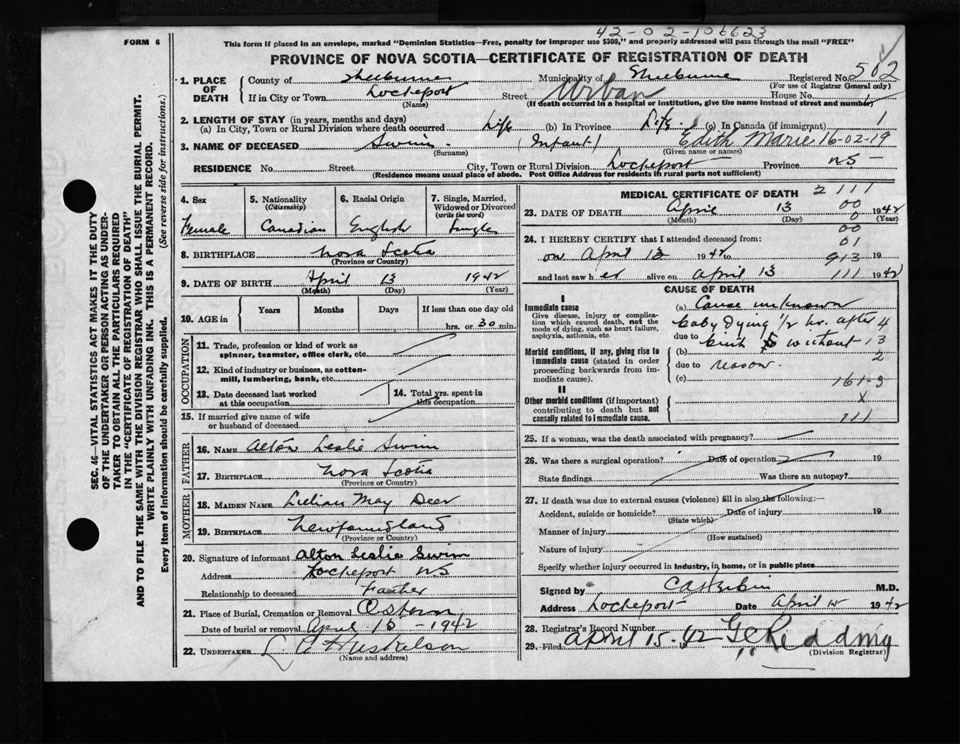 42-02-106623
FORM 6
This form if placed in an envelope, marked "Dominion Statistics—Free, penalty for improper use $300," and properly addressed will pass through the mail "FREE"
PROVINCE OF NOVA SCOTIA—CERTIFICATE OF REGISTRATION OF DEATH
SEC. 46—VITAL STATISTICS ACT MAKES IT THE DUTY
OF THE UNDERTAKER OR PERSON ACTING AS UNDERTAKER
TO OBTAIN ALL THE PARTICULARS REQUIRED
IN THE "CERTIFICATE OF REGISTRATION OF DEATH"
AND TO FILE THE SAME WITH THE DIVISION REGISTRAR WHO SHALL ISSUE THE BURIAL PERMIT.
WRITE PLAINLY WITH UNFADING INK. THIS IS A PERMANENT RECORD.
Every item of information should be carefully supplied. (See reverse side for instructions.)
1. PLACE OF DEATH County of Shelburne Municipality of Shelburne Registered No. 502
(For use of Registrar General only)
If in City or Town Lockeport Street Urban House No.
(Name) (If death occurred in a hospital or institution, give the name instead of street and number)
2. LENGTH OF STAY (in years, months and days)
(a) In City, Town or Rural Division where death occurred Life (b) In Province Life. (c) In Canada (if immigrant) 1
3. NAME OF DECEASED Swim (Infant) Edith Marie 16-02-19
(Surname) (Given name or names)
RESIDENCE No. Street City, Town or Rural Division Lockeport Province NS
(Residence means usual place of abode. Post Office Address for residents in rural parts not sufficient)
4. Sex 5. Nationality (Citizenship) 6. Racial Origin 7. Single, Married, Widowed or Divorced (write the word)
Female Canadian English Single
8. BIRTHPLACE Nova Scotia
(Province or Country)
9. DATE OF BIRTH April 13 1942
(Month) (Day) (Year)
10. AGE in Years Months Days If less than one day old
hrs. or 30 min.
OCCUPATION
11. Trade, profession or kind of work as spinner, teamster, office clerk, etc.
12. Kind of industry or business, as cotton-mill, lumbering, bank, etc.
13. Date deceased last worked at this occupation 14. Total yrs. spent in this occupation
15. If married give name of wife or husband of deceased
FATHER
16. NAME Alton Leslie Swim
17. BIRTHPLACE Nova Scotia
(Province or Country)
MOTHER
18. MAIDEN NAME Lillian May Deer
19. BIRTHPLACE Newfoundland
(Province or Country)
20. Signature of informant Alton Leslie Swim
Address Lockeport NS
Relationship to deceased Father
21. Place of Burial, Cremation or Removal
Date of burial or removal April 15 - 1942
22. UNDERTAKER
(Name and address)
MEDICAL CERTIFICATE OF DEATH 2 111
23. DATE OF DEATH April 13 0 1942
(Month) (Day) (Year)
00
24. I HEREBY CERTIFY that I attended deceased from: 01
on April 13 1942 to 913 19
and last saw her alive on April 13 111 1942
CAUSE OF DEATH
I
Immediate cause (a) Cause unknown
Give disease, injury or complication which caused death, not the mode of dying, such as heart failure, asphyxia, asthenia, etc.
baby dying 1/2 hr. after 4
due to birth & without 13
Morbid conditions, if any, giving rise to immediate cause (stated in order proceeding backwards from immediate cause).
(b) 2
due to reason.
(c) 161-9
II
Other morbid conditions (if important) contributing to death but not causally related to immediate cause.
x
111
25. If a woman, was the death associated with pregnancy?
26. Was there a surgical operation? Date of operation 19
State findings Was there an autopsy?
27. If death was due to external causes (violence) fill in also the following:—
Accident, suicide or homicide? Date of injury 19
(State which)
Manner of injury
(How sustained)
Nature of injury
Specify whether injury occurred in industry, in home, or in public place
Signed by M.D.
Address Lockeport Date April 1942
28. Registrar's Record Number
29. Filed April 15-42
(Division Registrar)